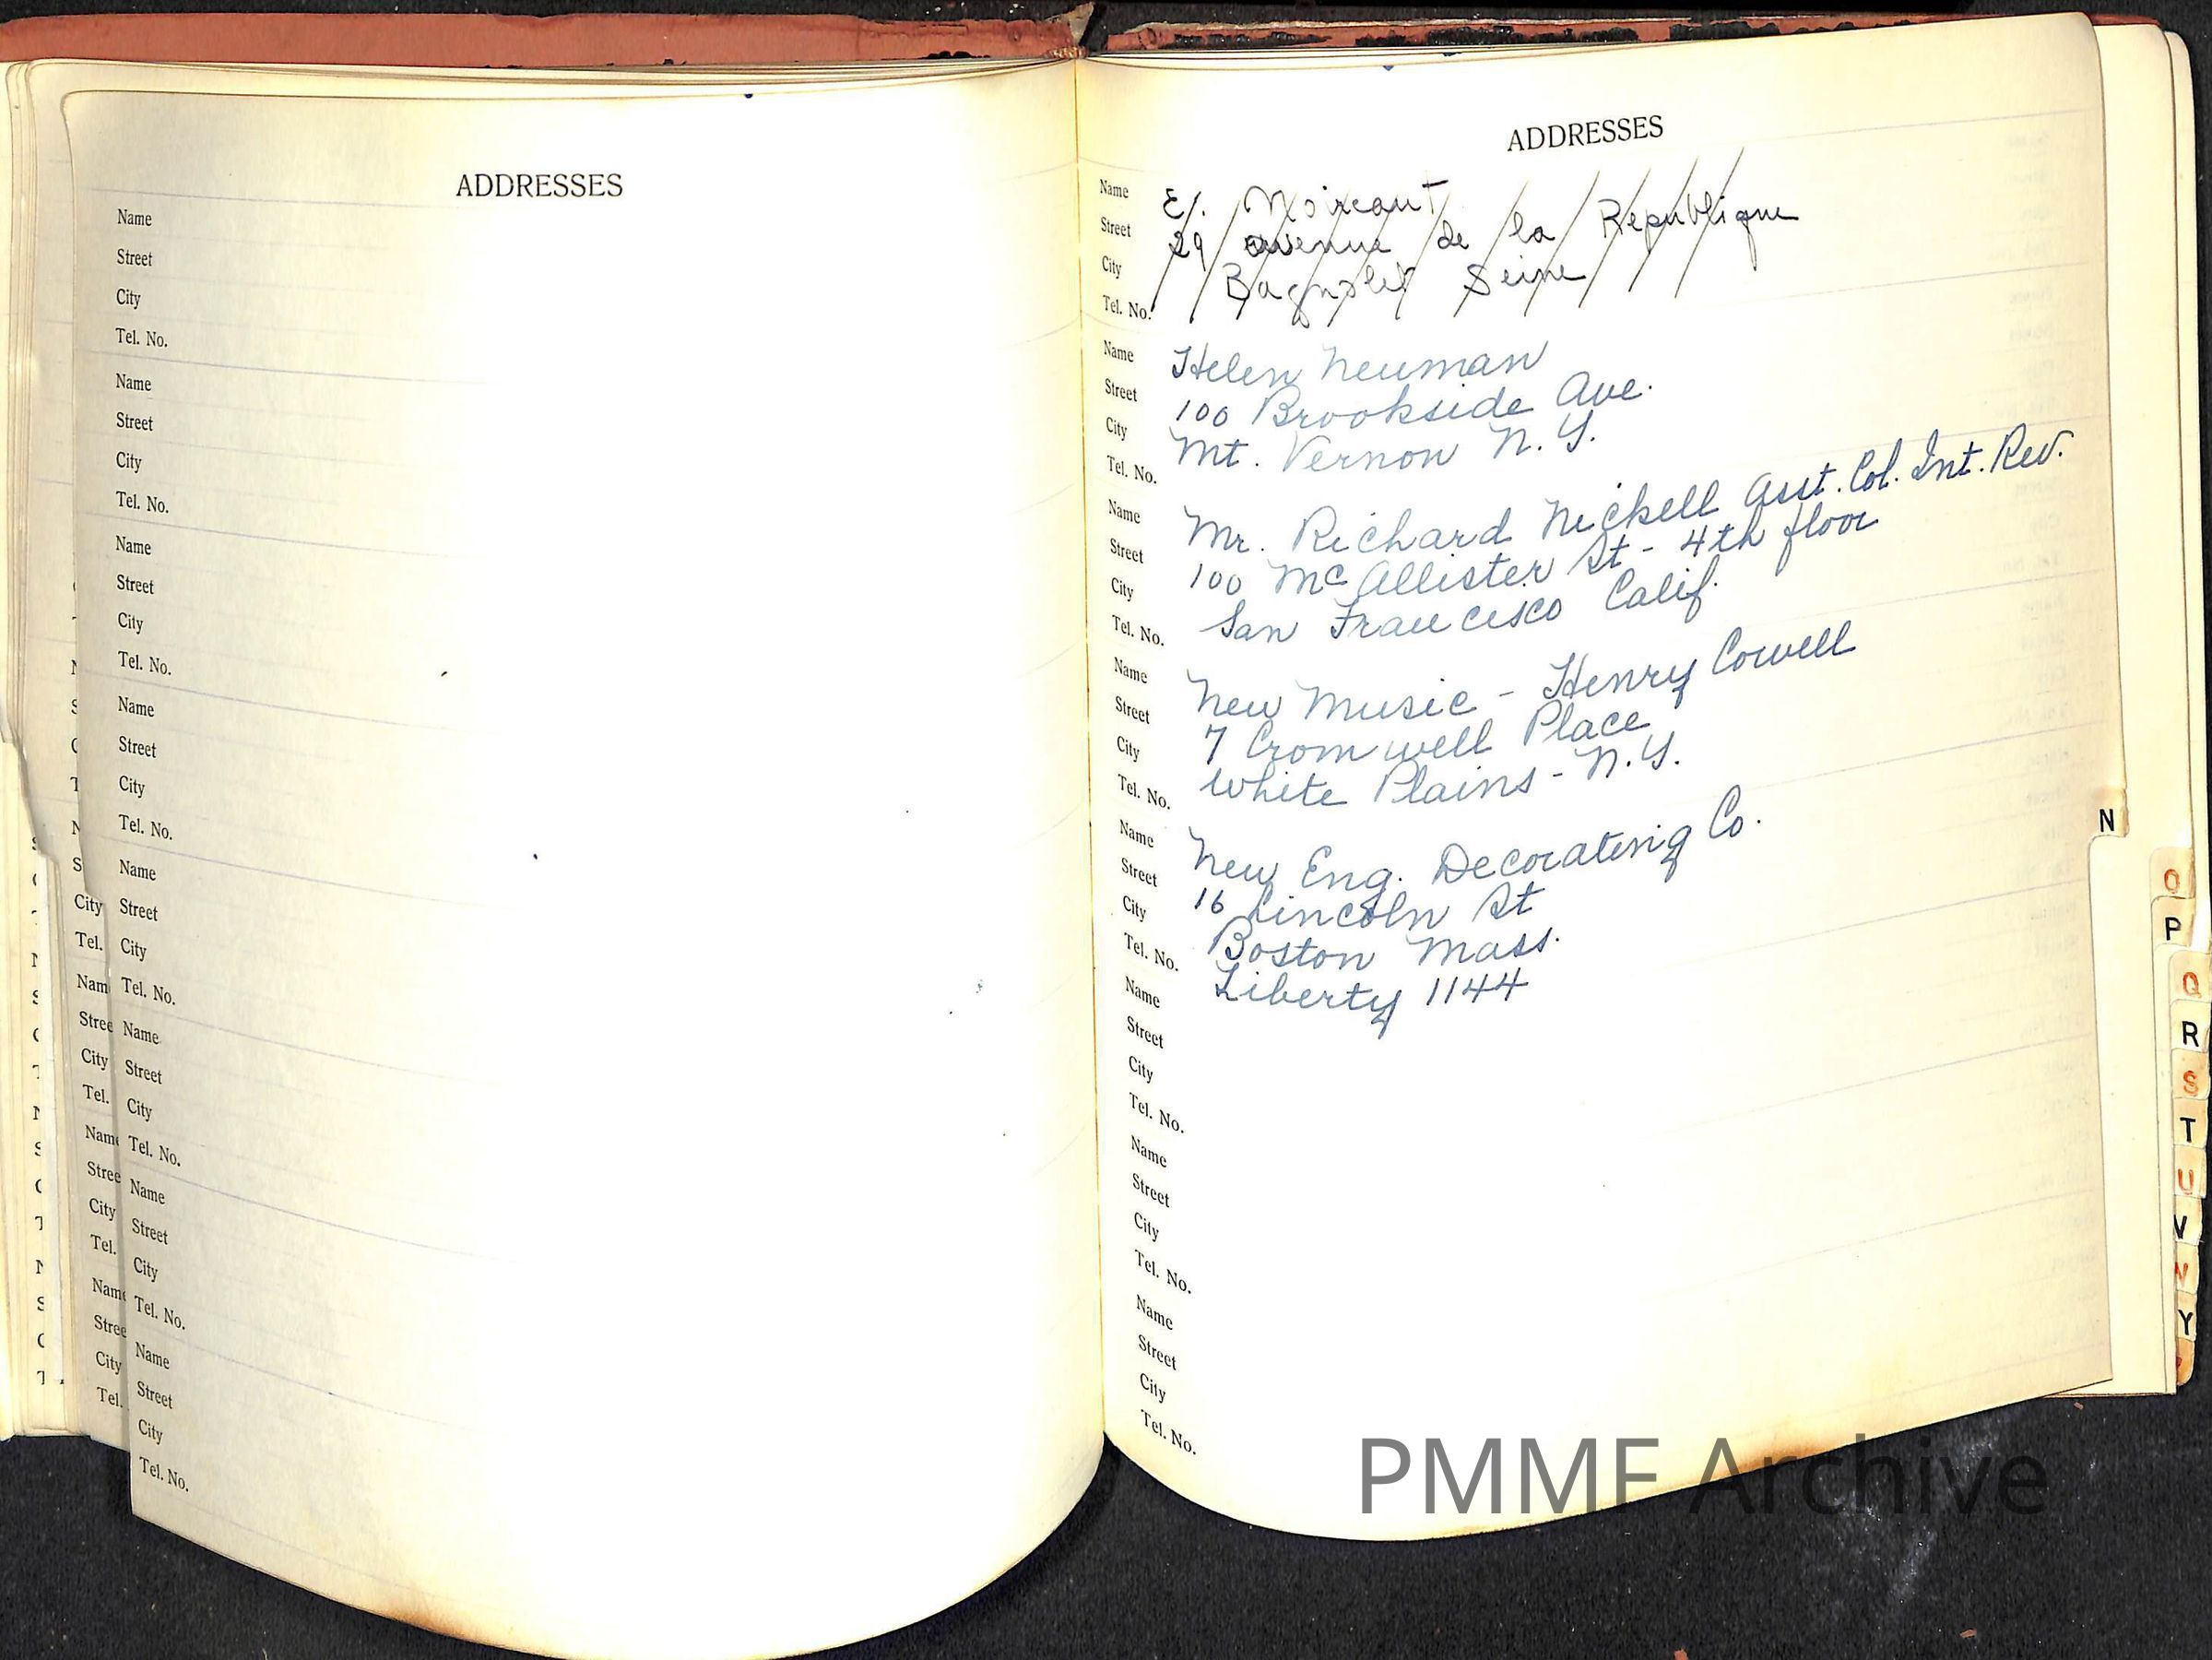 ADDRESSES
Name
Street
City
Tel. No.
Name
Street
City
Tel. No.
Name
Street
City
Tel. No.
Name
Street
City
Tel. No.
Name
Street
City
Tel. No.
Name
Street
City
Tel. No.
Name
Street
City
Tel. No.
Name
Street
City
Tel. No.
ADDRESSES
Name E. Noircaut
Street 29 avenue de la Republique
City Bagnolet Seine
Tel. No.
Name Helen Neuman
Street 100 Brookside Ave.
City Mt. Vernon N.Y.
Tel. No.
Name Mr. Richard Nickell Asst. Col. Int. Rev.
Street 100 McAllister St - 4th floor
City San Francisco Calif.
Tel. No.
Name New Music - Henry Cowell
Street 7 Cromwell Place
City White Plains - N.Y.
Tel. No.
Name New Eng. Decorating Co.
Street 16 Lincoln St
City Boston Mass.
Tel. No. Liberty 1144
Name
Street
City
Tel. No.
Name
Street
City
Tel. No.
Name
Street
City
Tel. No.
N
O
P
Q
R
S
T
U
V
W
Y
PMMF Archive